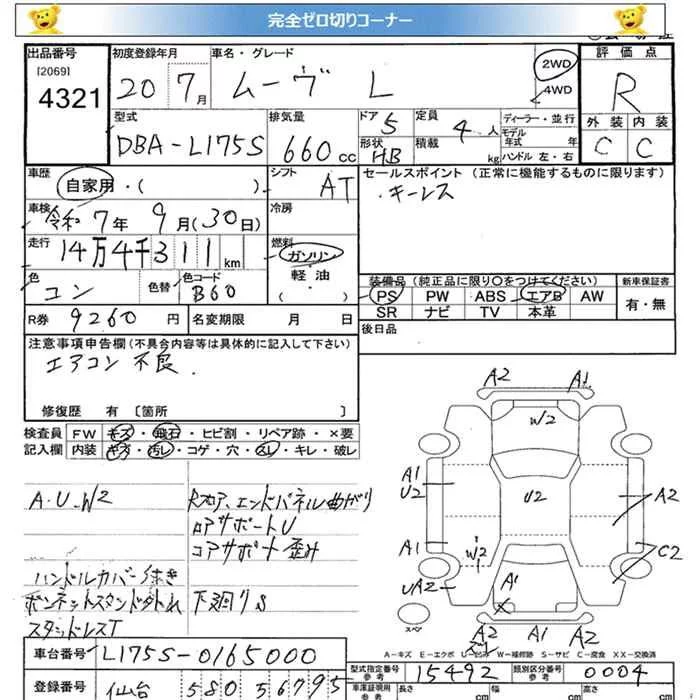 完全ゼロ切りコーナー
出品番号 初度登録年月 車名・グレード 2WD 評価点
[2069] 4321 20 7月 ムーヴ L 4WD R
型式 排気量 ドア 定員 ディーラー・並行 外装 内装
DBA-L175S 660cc 5 4人 モデル年式 年 C C
形状 HB 積載 kg ハンドル 左・右
車歴 シフト セールスポイント (正常に機能するものに限ります)
自家用・( ) AT ・キーレス
車検 令和7年9月(30日) 冷房
走行 14万4千311km 燃料 ガソリン・軽油 ( )
色 コン 色替 色コード B60
装備品 (純正品に限り〇をつけてください) 新車保証書
PS PW ABS エアB AW 有・無
SR ナビ TV 本革
R券 9260円 名変期限 月 日
後日品
注意事項申告欄(不具合内容等は具体的に記入して下さい)
エアコン不良
修復歴 有 [箇所 ]
検査員 FW キズ・飛石・ヒビ割・リペア跡・×要
記入欄 内装 キズ・汚レ・コゲ・穴・スレ・キレ・破レ
A.U.W2 Rフロア、エンドパネル曲がり
ロアサポートU
コアサポート歪み
ハンドルカバー
ボンネットスタンド外れ 下廻りS
スタッドレスT
A2 A1
W2
A1
U2 U2 A2
A1 W2 C2
UA2 A1
X
スペア A2 A1 A2
A-キズ E-エクボ U-凹み W-補修跡 S-サビ C-腐食 XX-交換済
車台番号 L175S-0165000
型式指定番号 参考 15492 類別区分番号 参考 0004
登録番号 仙台 580 56795
車庫証明用 参考 長さ cm 幅 cm 高さ cm